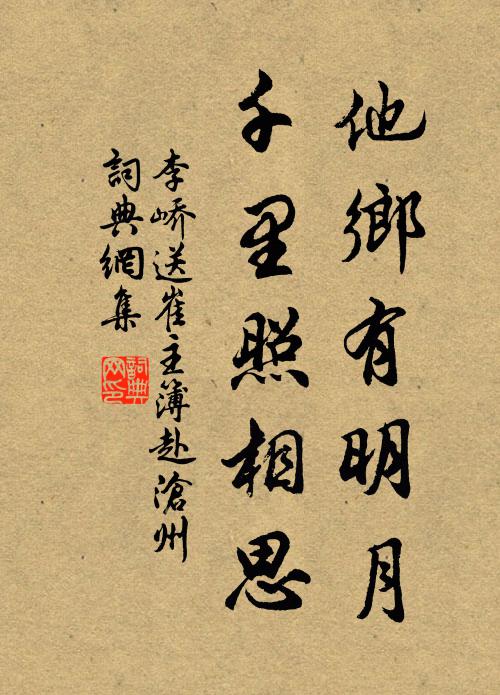 他鄉有明月
千里照相思
李嶠送崔主簿赴滄州
詞典網集
詞典
网印